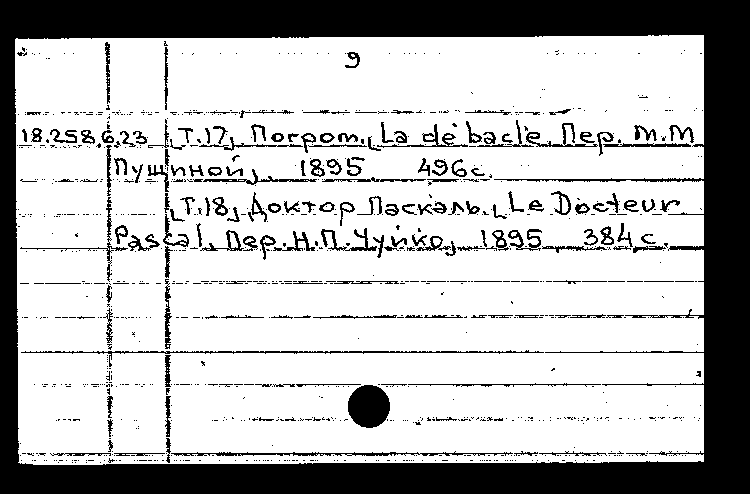 9
18.258.6.23 [Т.17], Погром. [La débacle. Пер. М.М
Пушиной], 1895. 496 с.
[Т.18] Доктор Паскаль. [Le Docteur
Pascal. Пер. Н.П. Чуйко], 1895. 384 с.